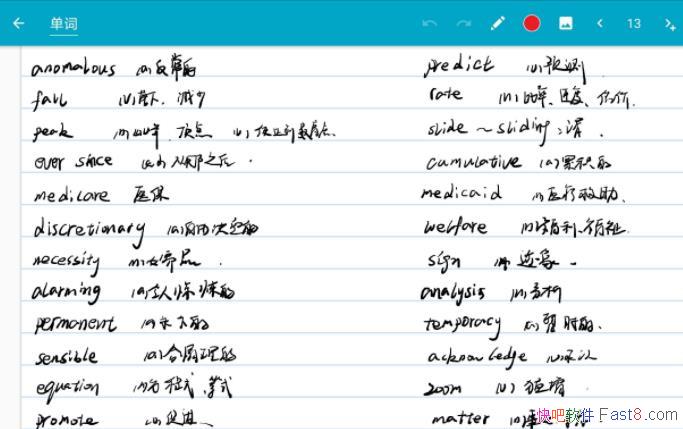 单词
13
anomalous (a)反常的 predict (v)预测
fall (v)落下、减少 rate (n)比率、速度、估价
peak (n)山峰、顶点 (v)使达到最高点 slide ~ sliding:滑
ever since 从那之后 cumulative (a)累积的
medicare 医保 medicaid (n)医疗救助
discretionary (a)自由决定的 welfare (n)福利、福祉
necessity (n)必需品 sign (n)迹象
alarming (a)令人惊慌的 analysis (n)分析
permanent (a)永久的 temporary (a)暂时的
sensible (a)合理的 acknowledge (v)承认
equation (n)方程式、等式 zoom (v)猛增
promote (v)促进 matter
快吧软件 Fast8.com